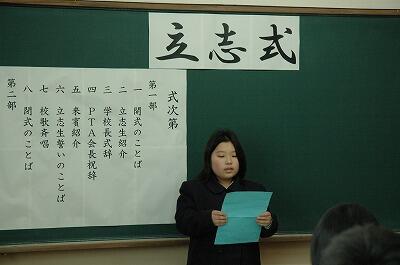 立志式
式次第
第一部
一 開式のことば
二 立志生紹介
三 学校長式辞
四 PTA会長祝辞
五 来賓紹介
六 立志生誓いのことば
七 校歌斉唱
八 閉式のことば
第二部